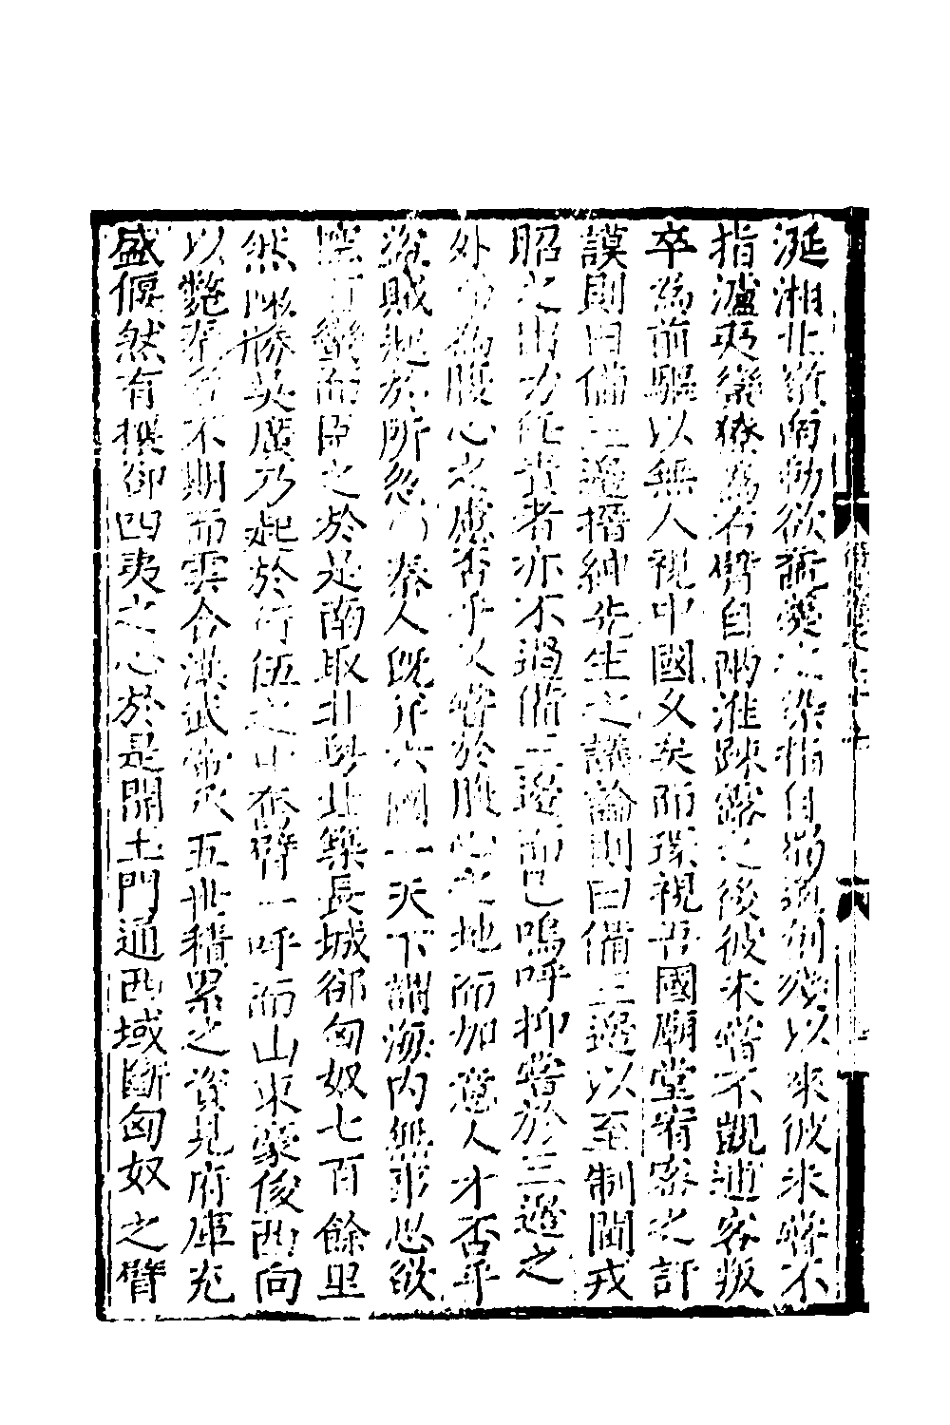 涎湘北嶺南勒欲舐羹之染指自弱適例幾以來彼未嘗不
指瀘爲蠻獠爲右臂自隔淮踈籬之後彼未嘗不覬逋客叛
卒爲前驅以無人視中國久矣而環視吾國廟堂宥密之訏
謨則曰備三邊搢紳先生之議論則曰備三邊以至制閫戎
昭之出力任責者亦不過備三邊而已嗚呼抑嘗於三邊之
外而爲腹心之慮否乎又嘗於腹心之地而加意人才否乎
盜賊起於所忽秦人旣并六國一天下謂海内無事忿欲
蠻而臣之於是南取北與北築長城卻匈奴七百餘里
然陳勝吳廣乃起於行伍之中奮臂一呼而山東豪俊西向
以斃秦者不期而雲合漢武帝承五世積累之資見府庫充
盛偃然有攘卻四夷之心於是開玉門通西域斷匈奴之臂